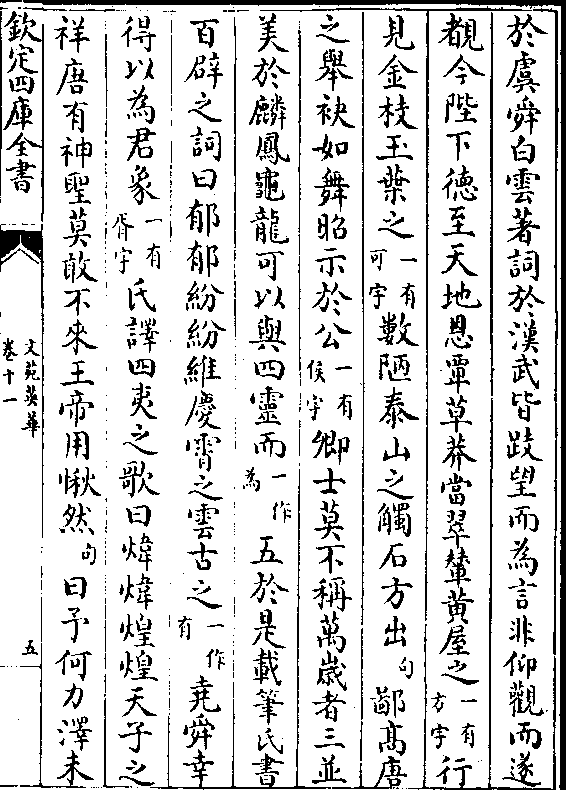 於虞舜白雲著詞於漢武皆跂望而為言非仰觀而遂
覩今陛下德至天地恩覃草莽當翠輦黄屋之一有方字行
見金枝玉葉之一有可字數陋泰山之觸石方出句鄙髙唐
之舉袂如舞昭示於公一有侯字卿士莫不稱萬歳者三並
美於麟鳳龜龍可以與四靈而一作為五於是載筆氏書
百辟之詞曰郁郁紛紛維慶霄之雲古之一作有堯舜幸
得以為君象一有胥字氏譯四夷之歌曰煒煒煌煌天子之
祥唐有神聖莫敢不來王帝用愀然句曰予何力澤未
欽定四庫全書
文苑英華
卷十一
五